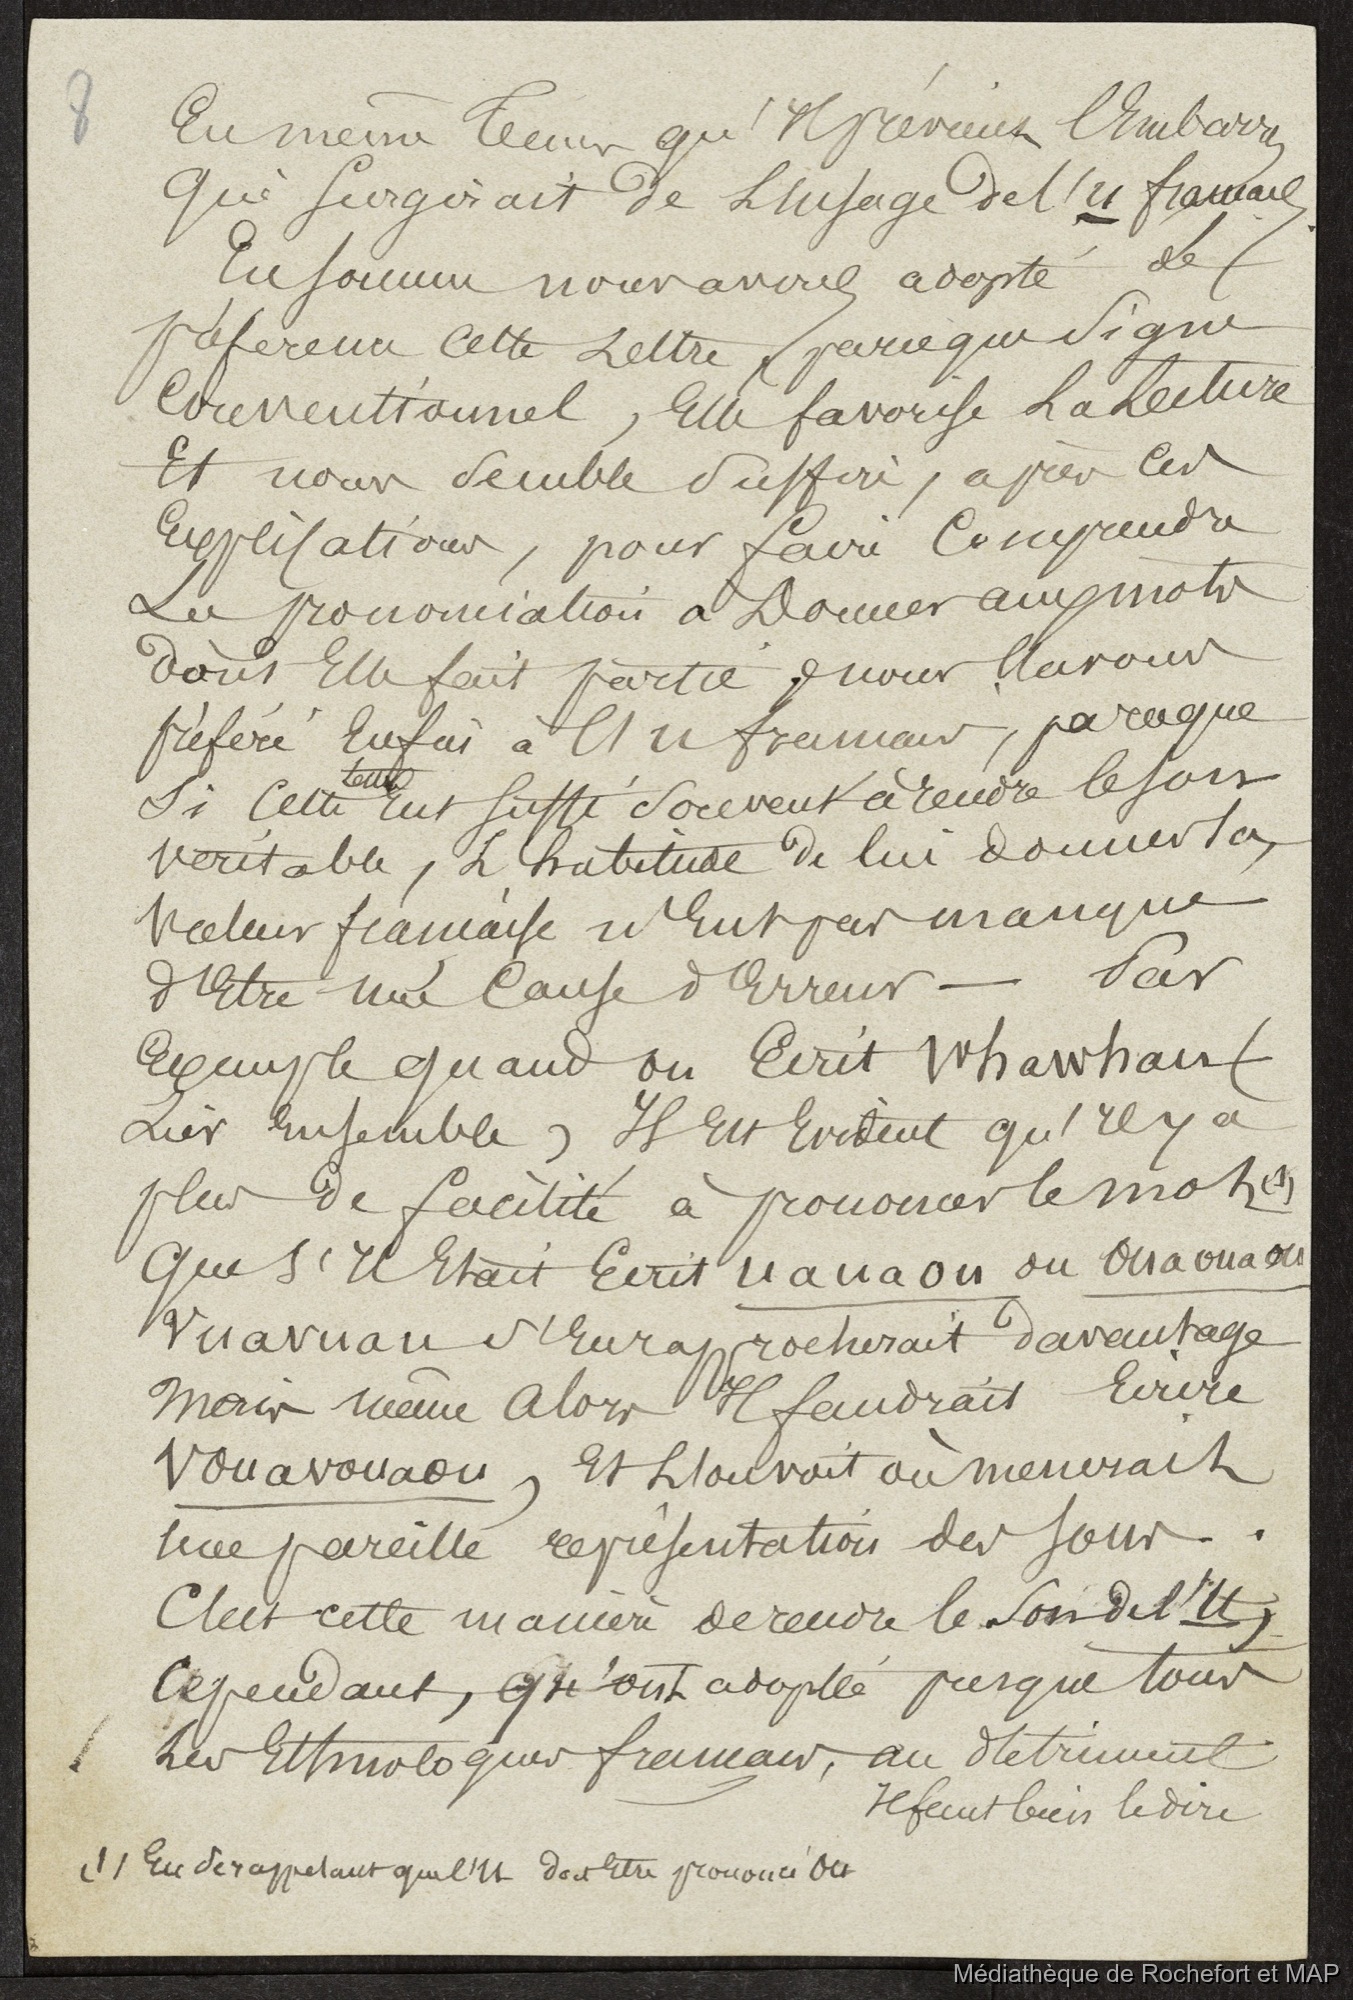 8
En même temps qu'Il prévient l'Embarras
Qui surgirait de L'usage de l'u français.
En somme nous avons adopté de
préférence cette Lettre, parceque signe
Conventionnel, Elle favorise La Lecture
Et nous semble suffire, après Ces
Explications, pour faire Comprendre
La prononciation a Donner aux mots
dont Elle fait partie, nous l'avons
préféré Enfin à l'u français, parceque
Si Cette Eut suffi souvent à rendre le son
veritable, L'habitude de lui donner la
Valeur française n'Eut pas manqué
d'Etre une Cause d'Erreur — Par
Exemple quand on Ecrit Whawhau
Liés Ensemble, Il Est Evident qu'Il y a
plus de facilité à prononcer le mot (1)
Que S'Il Etait Ecrit uauaou ou Ouaouaou
Vuavuau s'En rapprocherait davantage
Mais même Alors Il faudrait Ecrire
Vouavouaou, Et L'on voit où menerait
une pareille représentation des sons.
C'est cette manière de rendre le Son de l'U,
Cependant, qu'ont adoptée presque tous
Les Ethnologues français, au détriment
Il faut bien le dire
(1) En se rappelant que l'U doit Etre prononcé Ou
Médiathèque de Rochefort et MAP